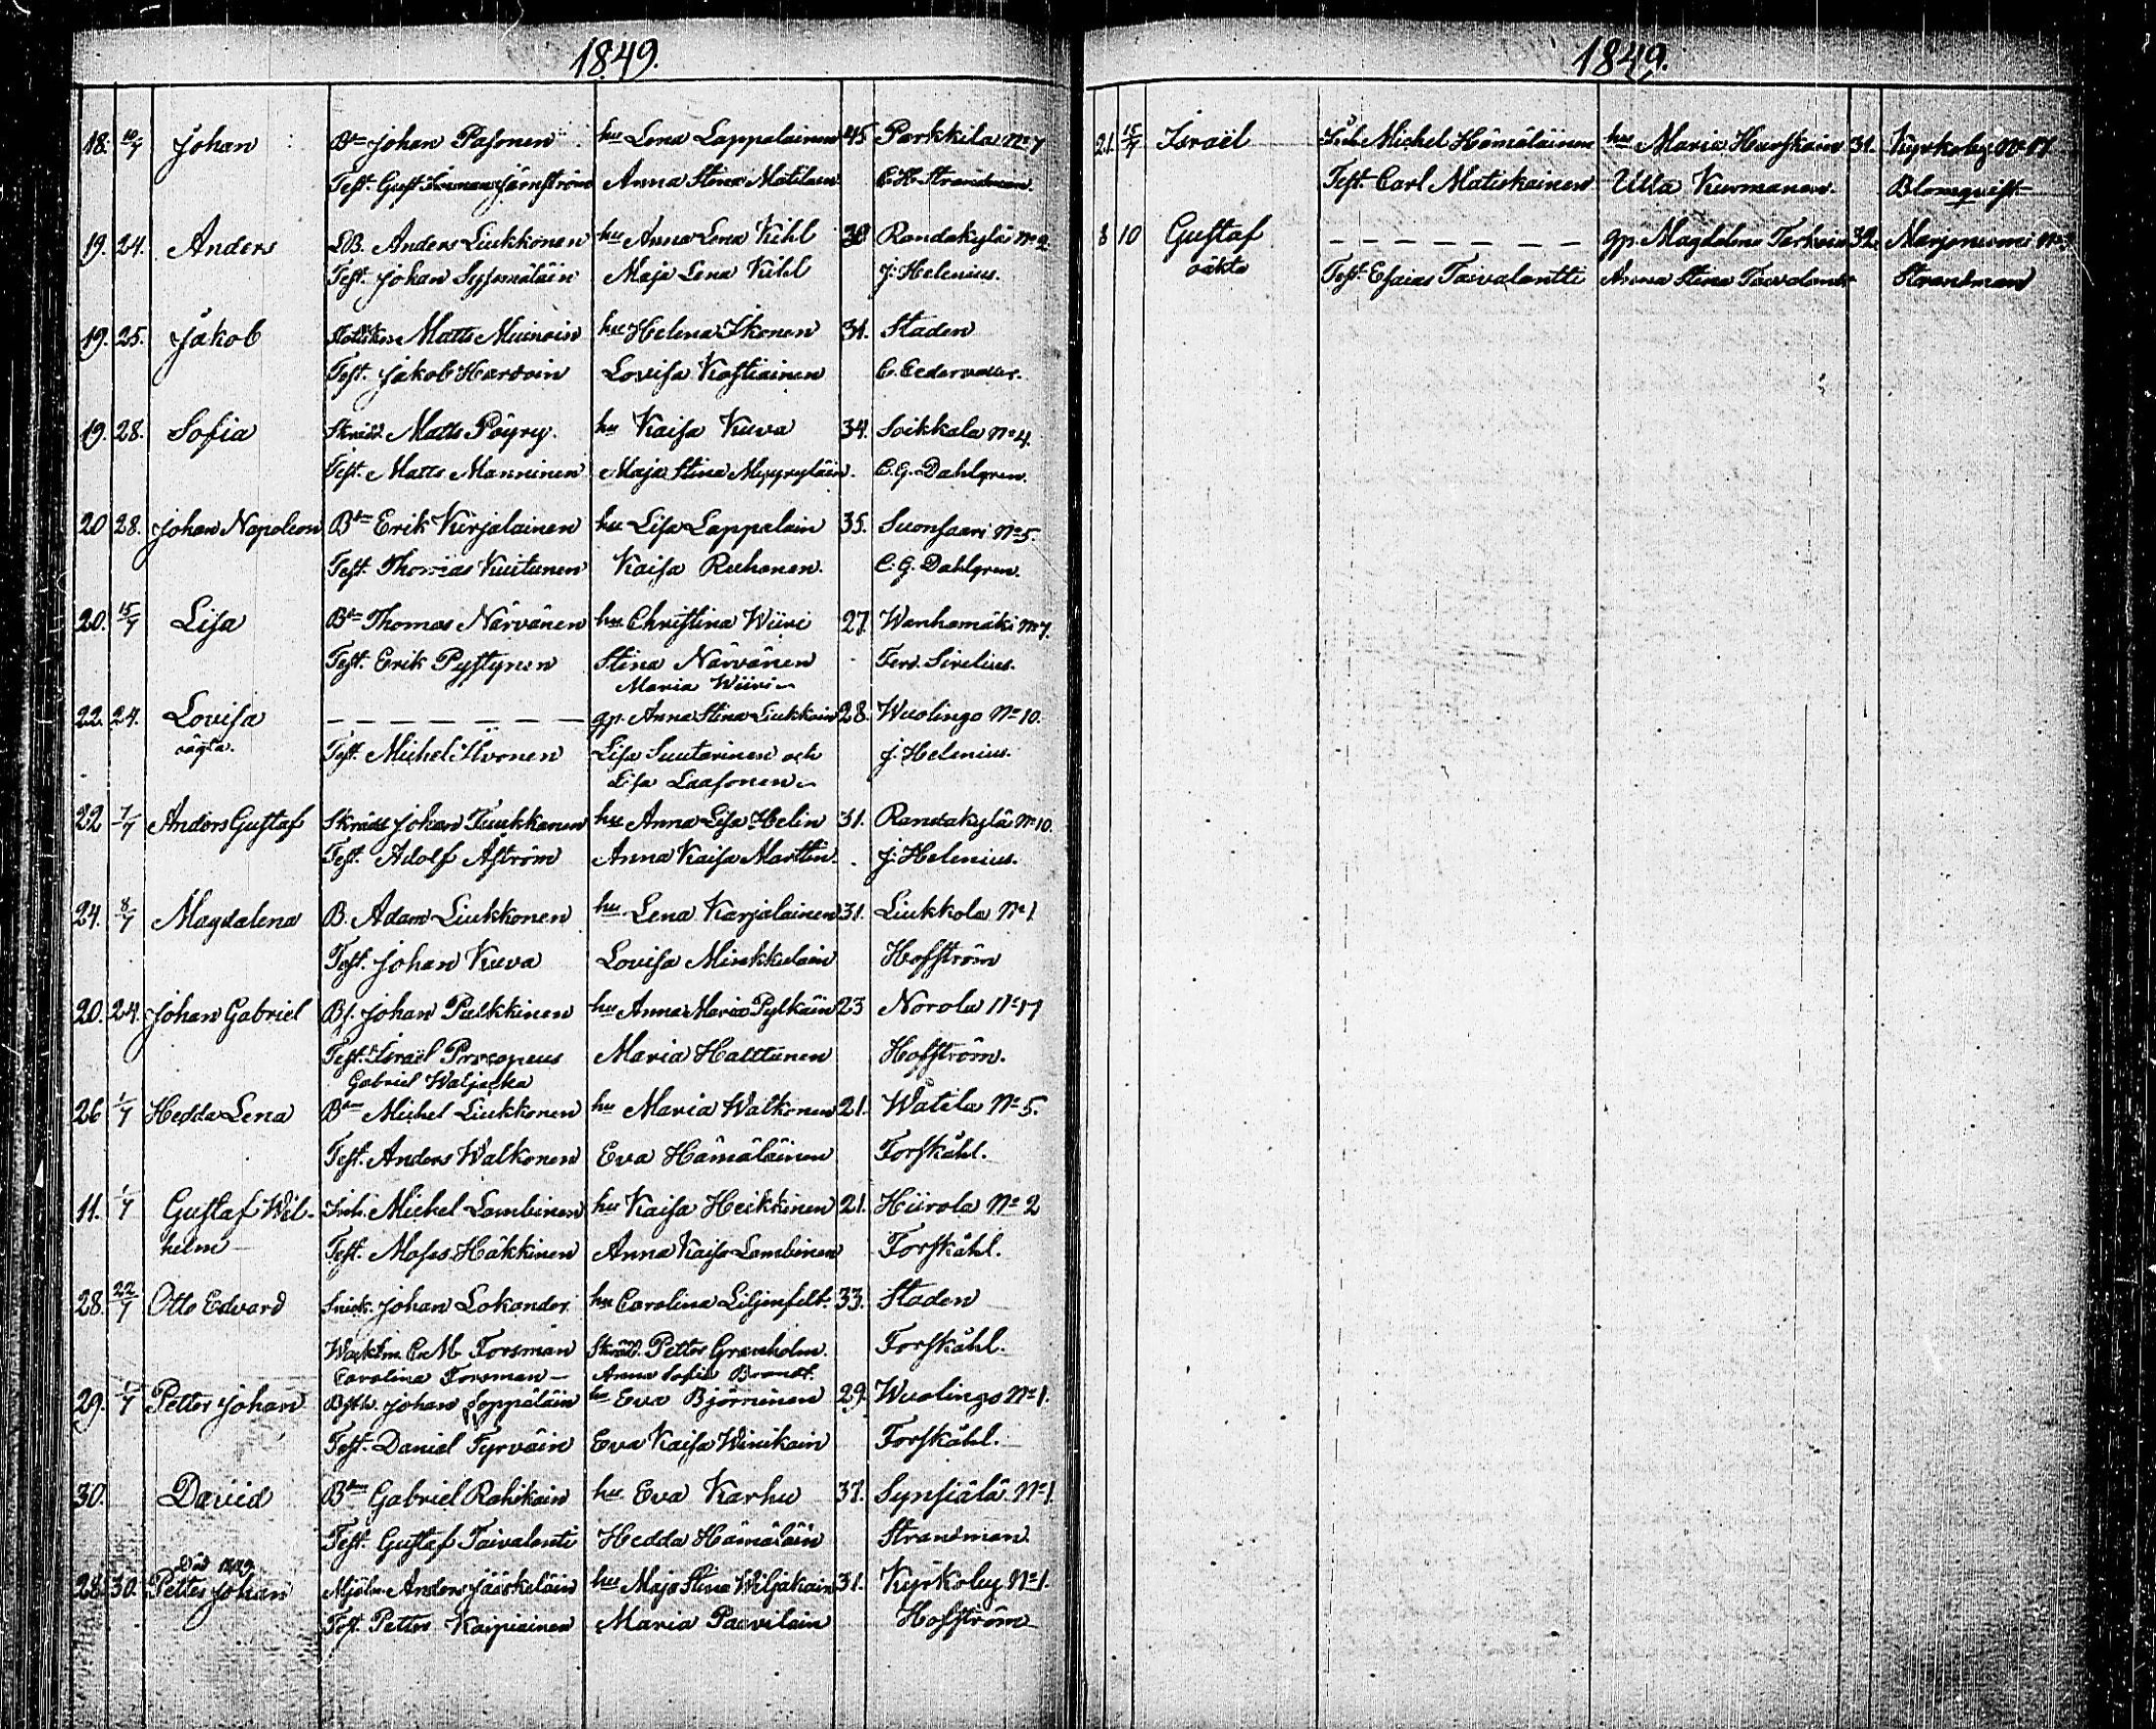 1849.
18. 10/7 Johan Bdn Johan Pasonen hu Lena Lappalainen 45 Parkkila No 7
Test. Gust. Järnström Anna Stina Matilain C. H. Strandman.
19. 24. Anders LB. Anders Liukkonen hu Anna Lena Kihl 30 Randakylä No 2
Test. Johan Syssmäläin Maja Lena Kihl J. Helenius.
19. 25. Jakob Matts Muinoin hu Helena Ikonen 31. Staden
Test. Jakob Hardoin Lovisa Kostiainen C. Cedervaller.
19. 28. Sofia Skrädd. Matts Pöyry. hu Kaisa Kuva 34. Soikkala No 4.
Test. Matts Manninen Maja Stina Myyryläin. C. G. Dahlgren.
20 28. Johan Napoleon Bdn Erik Kirjalainen hu Lisa Lappalain 35. Suonsaari No 5.
Test. Thomas Kuitunen Kaisa Ruhanen. C. G. Dahlgren.
20. 15/7 Lisa Bdn Thomas Närvänen hu Christina Wiiri 27. Wanhamäki No 7.
Test. Erik Pystynen Stina Närvänen Ferd. Sirelius.
Maria Wiiri
22. 24. Lovisa – – – – – – – gp. Anna Stina Liukkoin 28. Wuolingo No 10.
oägta. Test. Michel Ilvonen Lisa Suutarinen och J. Helenius.
Lisa Laasonen
22 7/7 Anders Gustaf Skrädd Johan Tuukkanen hu Anna Lisa Helin 31. Randakylä No 10.
Test. Adolf Åström Anna Kaisa Marttin. J. Helenius.
24. 8/7 Magdalena B. Adam Liukkonen hu Lena Karjalainen 31. Liukkola No 1
Test. Johan Kuva Lovisa Minkkulain Hofström
20. 24. Johan Gabriel Bf. Johan Pulkkinen hu Anna Maria Pylkäin 23 Norola No 17
Test. Israël Procopeus Maria Halttunen Hofström.
Gabriel Waljacka
26 1/7 Hedda Lena Bdn Michel Liukkonen hu Maria Walkonen 21. Watila No 5.
Test. Anders Walkonen Eva Hämäläinen Forskåhl.
11. 1/7 Gustaf Wil- Inh. Michel Lambinen hu Kaisa Heikkinen 21. Hiirola No 2
helm Test. Moses Häkkinen Anna Kaisa Lambinen Forskåhl.
28. 22/7 Otto Edvard Snick. Johan Lokander. hu Carolina Liljenfelt. 33. Staden
Wacktm. C. M. Forsman Skrädd. Petter Granholm. Forskåhl.
Carolina Forsman Anna Sofia Brandt.
29. 1/7 Petter Johan Johan Loppäläin hu Eva Björninen 29. Wuolingo No 1.
Test. Daniel Tyrväin Eva Kaisa Winikain Forskåhl.
30. David Bdn Gabriel Rahikain hu Eva Karhu 37. Synsiälä No 1.
Test. Gustaf Taivalanti Hedda Hämäläin Strandman.
Död 1849
28. 30. Petter Johan Mjöln. Anders Jääskeläin hu Maja Stina Wiljakain 31. Kyrkoby No 1.
Test. Petter Kaipiainen Maria Paavilain Hofström
1849.
21. 15/7 Israël Inh. Michel Hämäläinen hu Maria Hurskain 31. Kyrkoby No 17
Test. Carl Matiskainen Ulla Kurmanen. Blomqvist
8 10 Gustaf – – – – – – – gp. Magdalena Tarkiain 32. Marjoniemi No
oäkta Test. Esaias Taivalantti Anna Stina Taivalant Strandman